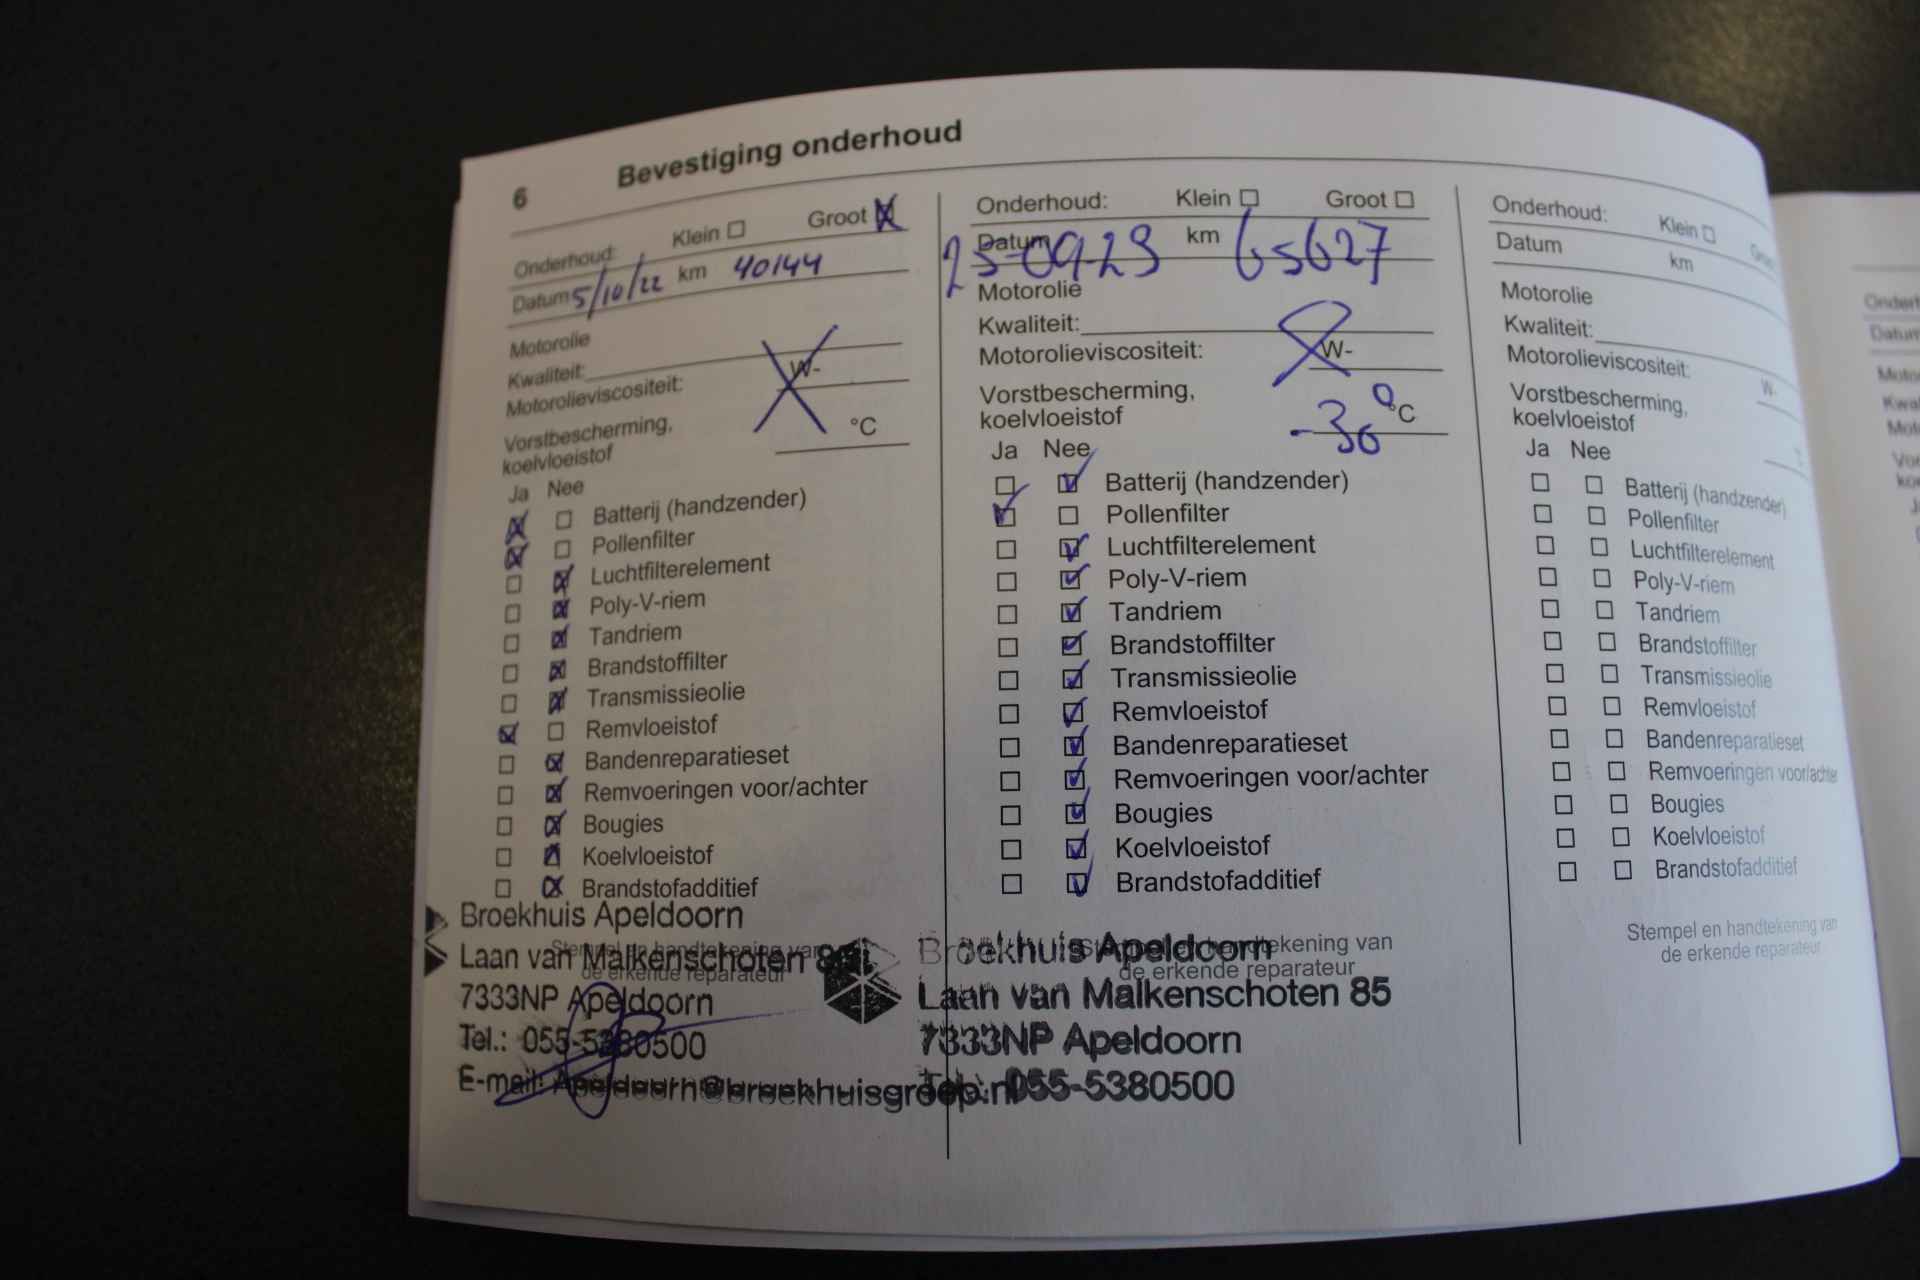 6 Bevestiging onderhoud
Onderhoud: Klein Groot
Datum 5/10/22 km 40144
Motorolie
Kwaliteit:
Motorolieviscositeit: W-
Vorstbescherming,
koelvloeistof °C
Ja Nee
Batterij (handzender)
Pollenfilter
Luchtfilterelement
Poly-V-riem
Tandriem
Brandstoffilter
Transmissieolie
Remvloeistof
Bandenreparatieset
Remvoeringen voor/achter
Bougies
Koelvloeistof
Brandstofadditief
Stempel en handtekening van
de erkende reparateur
Broekhuis Apeldoorn
Laan van Malkenschoten
7333NP Apeldoorn
Tel.: 055-5380500
E-mail: Apeldoorn@broekhuisgroep.nl
Onderhoud: Klein Groot
Datum 25-09-23 km 65627
Motorolie
Kwaliteit:
Motorolieviscositeit: W-
Vorstbescherming,
koelvloeistof -30° °C
Ja Nee
Batterij (handzender)
Pollenfilter
Luchtfilterelement
Poly-V-riem
Tandriem
Brandstoffilter
Transmissieolie
Remvloeistof
Bandenreparatieset
Remvoeringen voor/achter
Bougies
Koelvloeistof
Brandstofadditief
Stempel en handtekening van
de erkende reparateur
Broekhuis Apeldoorn
Laan van Malkenschoten 85
7333NP Apeldoorn
Tel.: 055-5380500
Onderhoud: Klein
Datum km
Motorolie
Kwaliteit:
Motorolieviscositeit: W-
Vorstbescherming,
koelvloeistof
Ja Nee
Batterij (handzender)
Pollenfilter
Luchtfilterelement
Poly-V-riem
Tandriem
Brandstoffilter
Transmissieolie
Remvloeistof
Bandenreparatieset
Remvoeringen voor/achter
Bougies
Koelvloeistof
Brandstofadditief
Stempel en handtekening van
de erkende reparateur